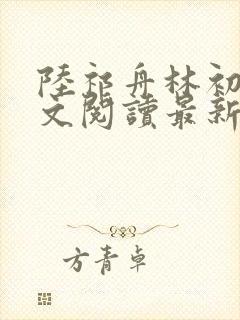 陸祁舟林初
文閱讀最新
方青卓